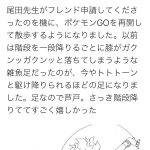 尾田先生がフレンド申請してくださ
ったのを機に、ポケモンGOを再開し
て散歩するようになりました。以前
は階段を一段降りるごとに膝がガク
ンッガクンッと落ちてしまうような
雑魚足だったのが、今やトトトーン
と駆け降りられるほどの足になりま
した。足なので芦戸。さっき階段降
りててすごく嬉しかった